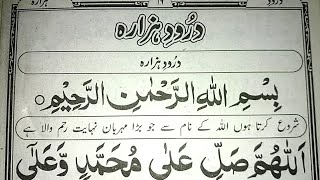 درود ۱۲ ہزارہ
درُودِ ہزارہ
درُودِ ہزارہ
بِسْمِ اللهِ الرَّحْمٰنِ الرَّحِيْمِ
شروع کرتا ہوں اللہ کے نام سے جو بڑا مہربان نہایت رحم والا ہے
اَللّٰهُمَّ صَلِّ عَلٰى مُحَمَّدٍ وَّعَلٰٓى